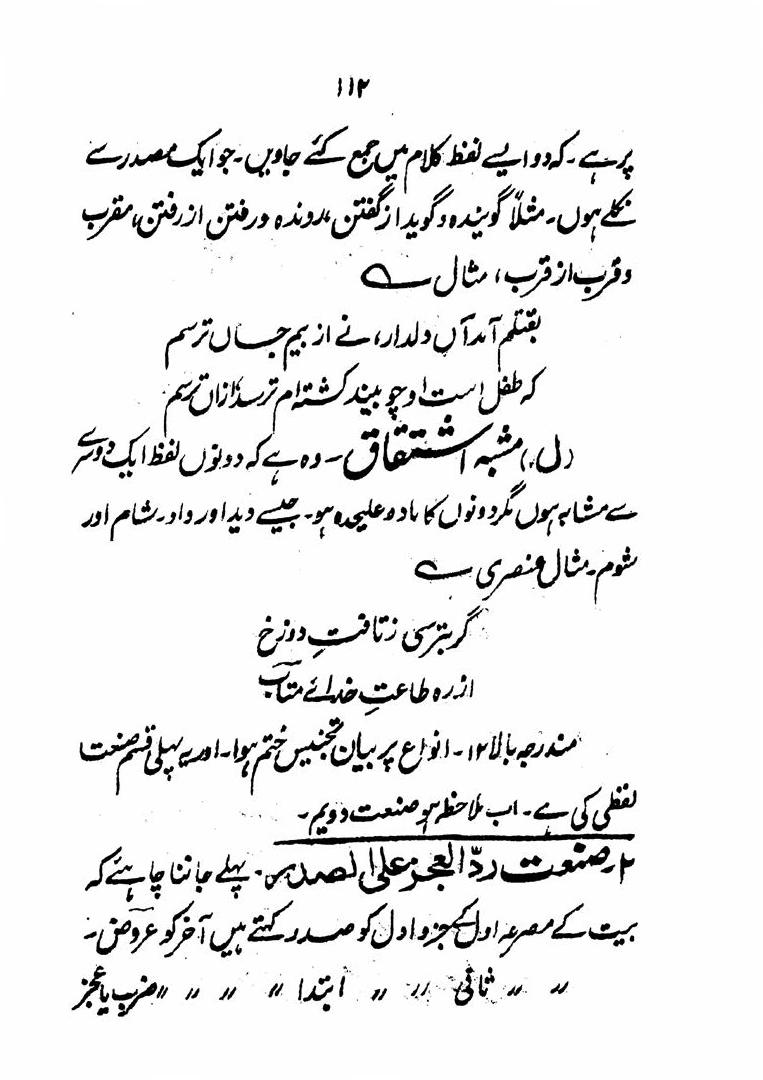 ۱۱۲
پر ہے۔ کہ دو ایسے لفظ کلام میں جمع کئے جاویں۔ جو ایک مصدر سے
نکلے ہوں۔ مثلاً گویندہ و گوید از گفتن، روندہ و رفتن از رفتن، مقرب
و قرب از قرب، مثال ؎
بقتلم آمد آں دلدار، نے از بیم جاں ترسم
کہ طفل است او چو بیند کشتہ ام ترسد ازاں ترسم
(ل) مشبہ اشتقاق۔ وہ ہے کہ دونوں لفظ ایک دوسرے
سے مشابہ ہوں مگر دونوں کا مادہ علیحدہ ہو۔ جیسے دید اور داد۔ شام اور
شوم۔ مثال عنصری ؎
گر بترسی ز تافتِ دوزخ
از رہ طاعتِ خدائے متاب
مندرجہ بالا ۱۲۔ انواع پر بیان تجنیس ختم ہوا۔ اور یہ پہلی قسم صنعت
لفظی کی ہے۔ اب ملاحظہ ہو صنعت دویم۔
۲۔ صنعت ردّ العجز علی الصدر۔ پہلے جاننا چاہئے کہ
بیت کے مصرعہ اول کے جزو اول کو صدر کہتے ہیں آخر کو عروض۔
〃 〃 ثانی 〃 〃 ابتدا 〃 〃 〃 〃 ضرب یا عجز